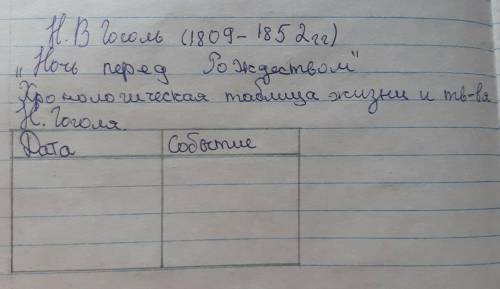 Н. В Гоголь (1809-1852гг)
„Ночь перед Рождеством"
Хронологическая таблица жизни и тв-ва
Н. Гоголя.
Дата Событие